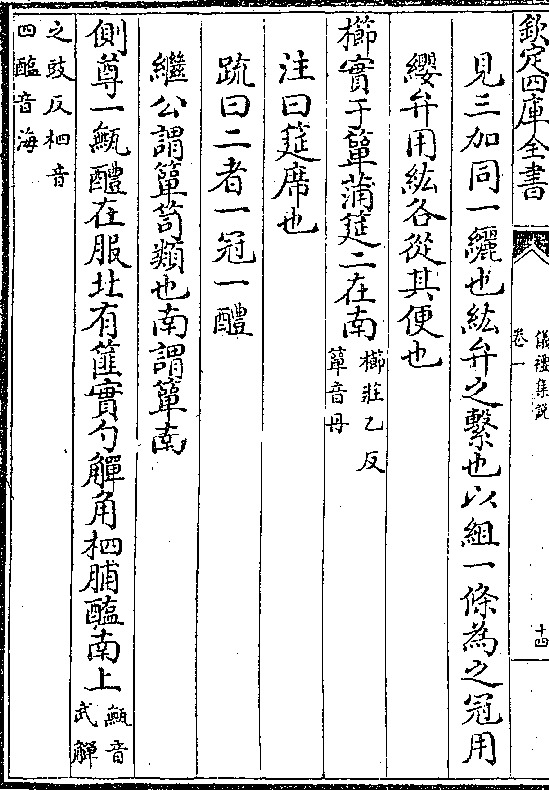 欽定四庫全書
儀禮集說
卷一
十四
見三加同一纚也紘弁之繫也以組一條為之冠用
纓弁用紘各從其便也
櫛實于簞蒲筵二在南櫛莊乙反簞音丹
注曰筵席也
疏曰二者一冠一醴
繼公謂簞笥類也南謂簞南
側尊一甒醴在服北有篚實勺觶角柶脯醢南上甒音武觶
之豉反柶音四醢音海